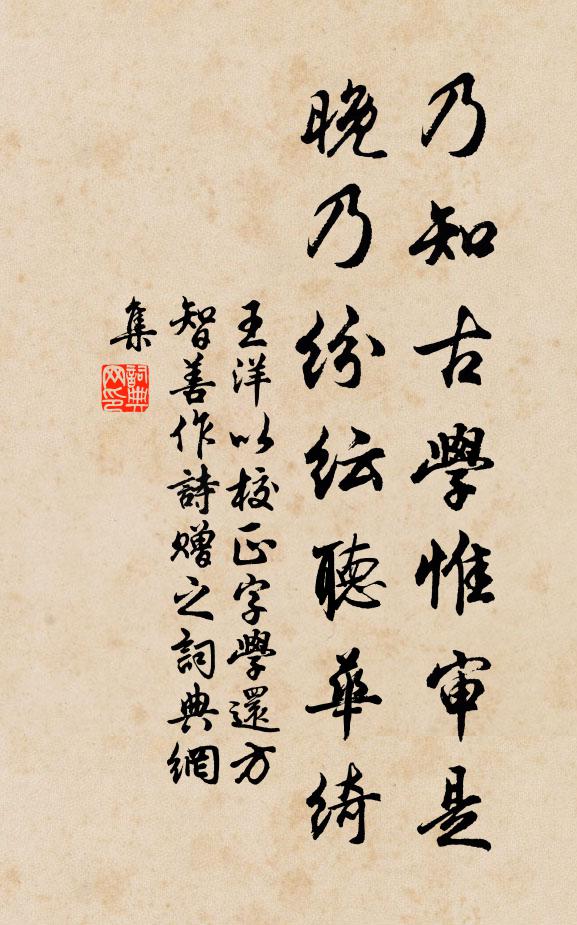 乃知古學惟审是
晚乃紛紜聽華綺
王洋以校正字學還方
智善作詩赠之詞典網
集
詞典
网印